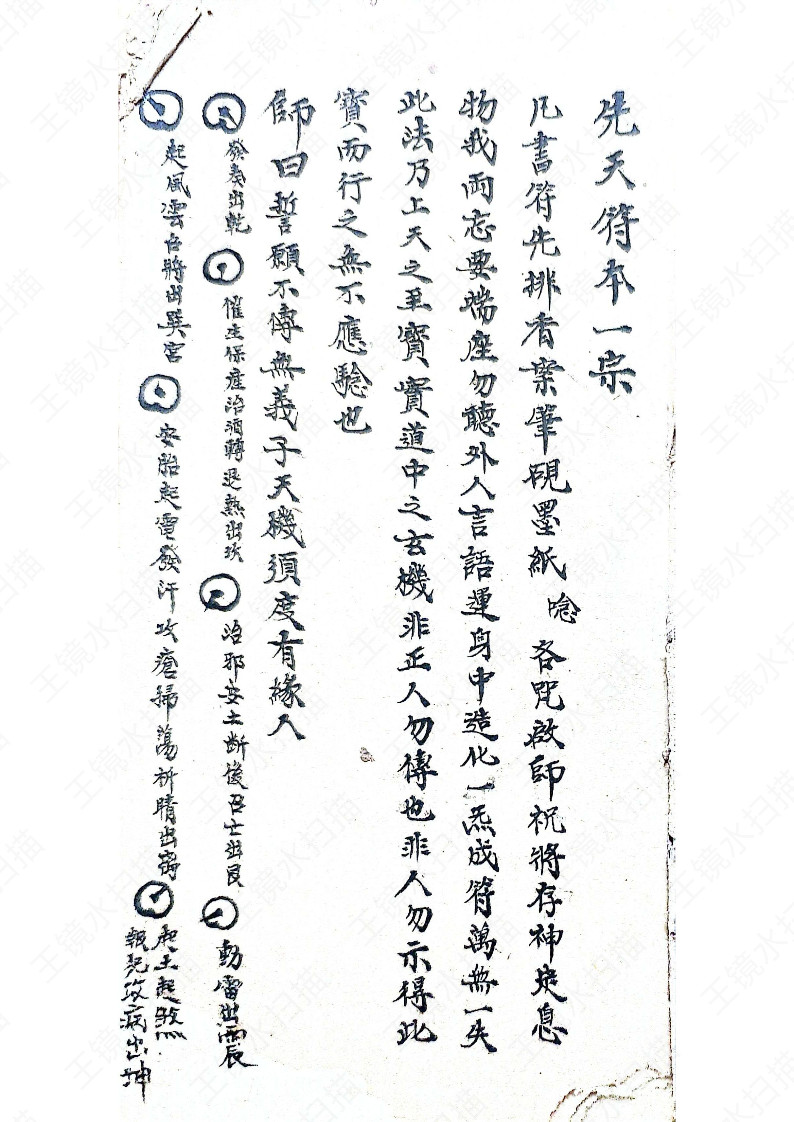 先天符本一宗
凡書符先排香案筆硯墨紙 唸 各咒啟師祝將存神定息
物我兩忘要端座勿聽外人言語運身中造化一炁成符萬無一失
此法乃上天之至寶寶道中之玄機非正人勿傳也非人勿示得此
寶而行之無不應驗也
師曰誓願不傳無義子天磯須度有緣人
發奏出乾 催生保產治酒轉退熱出坎 治邪安土断後召亡出艮 動雷出震
起風雲召將出巽宮 安胎起雷發汗攻瘡掃蕩祈晴出离 起土起煞
報兇攻病出坤
王镜水扫描